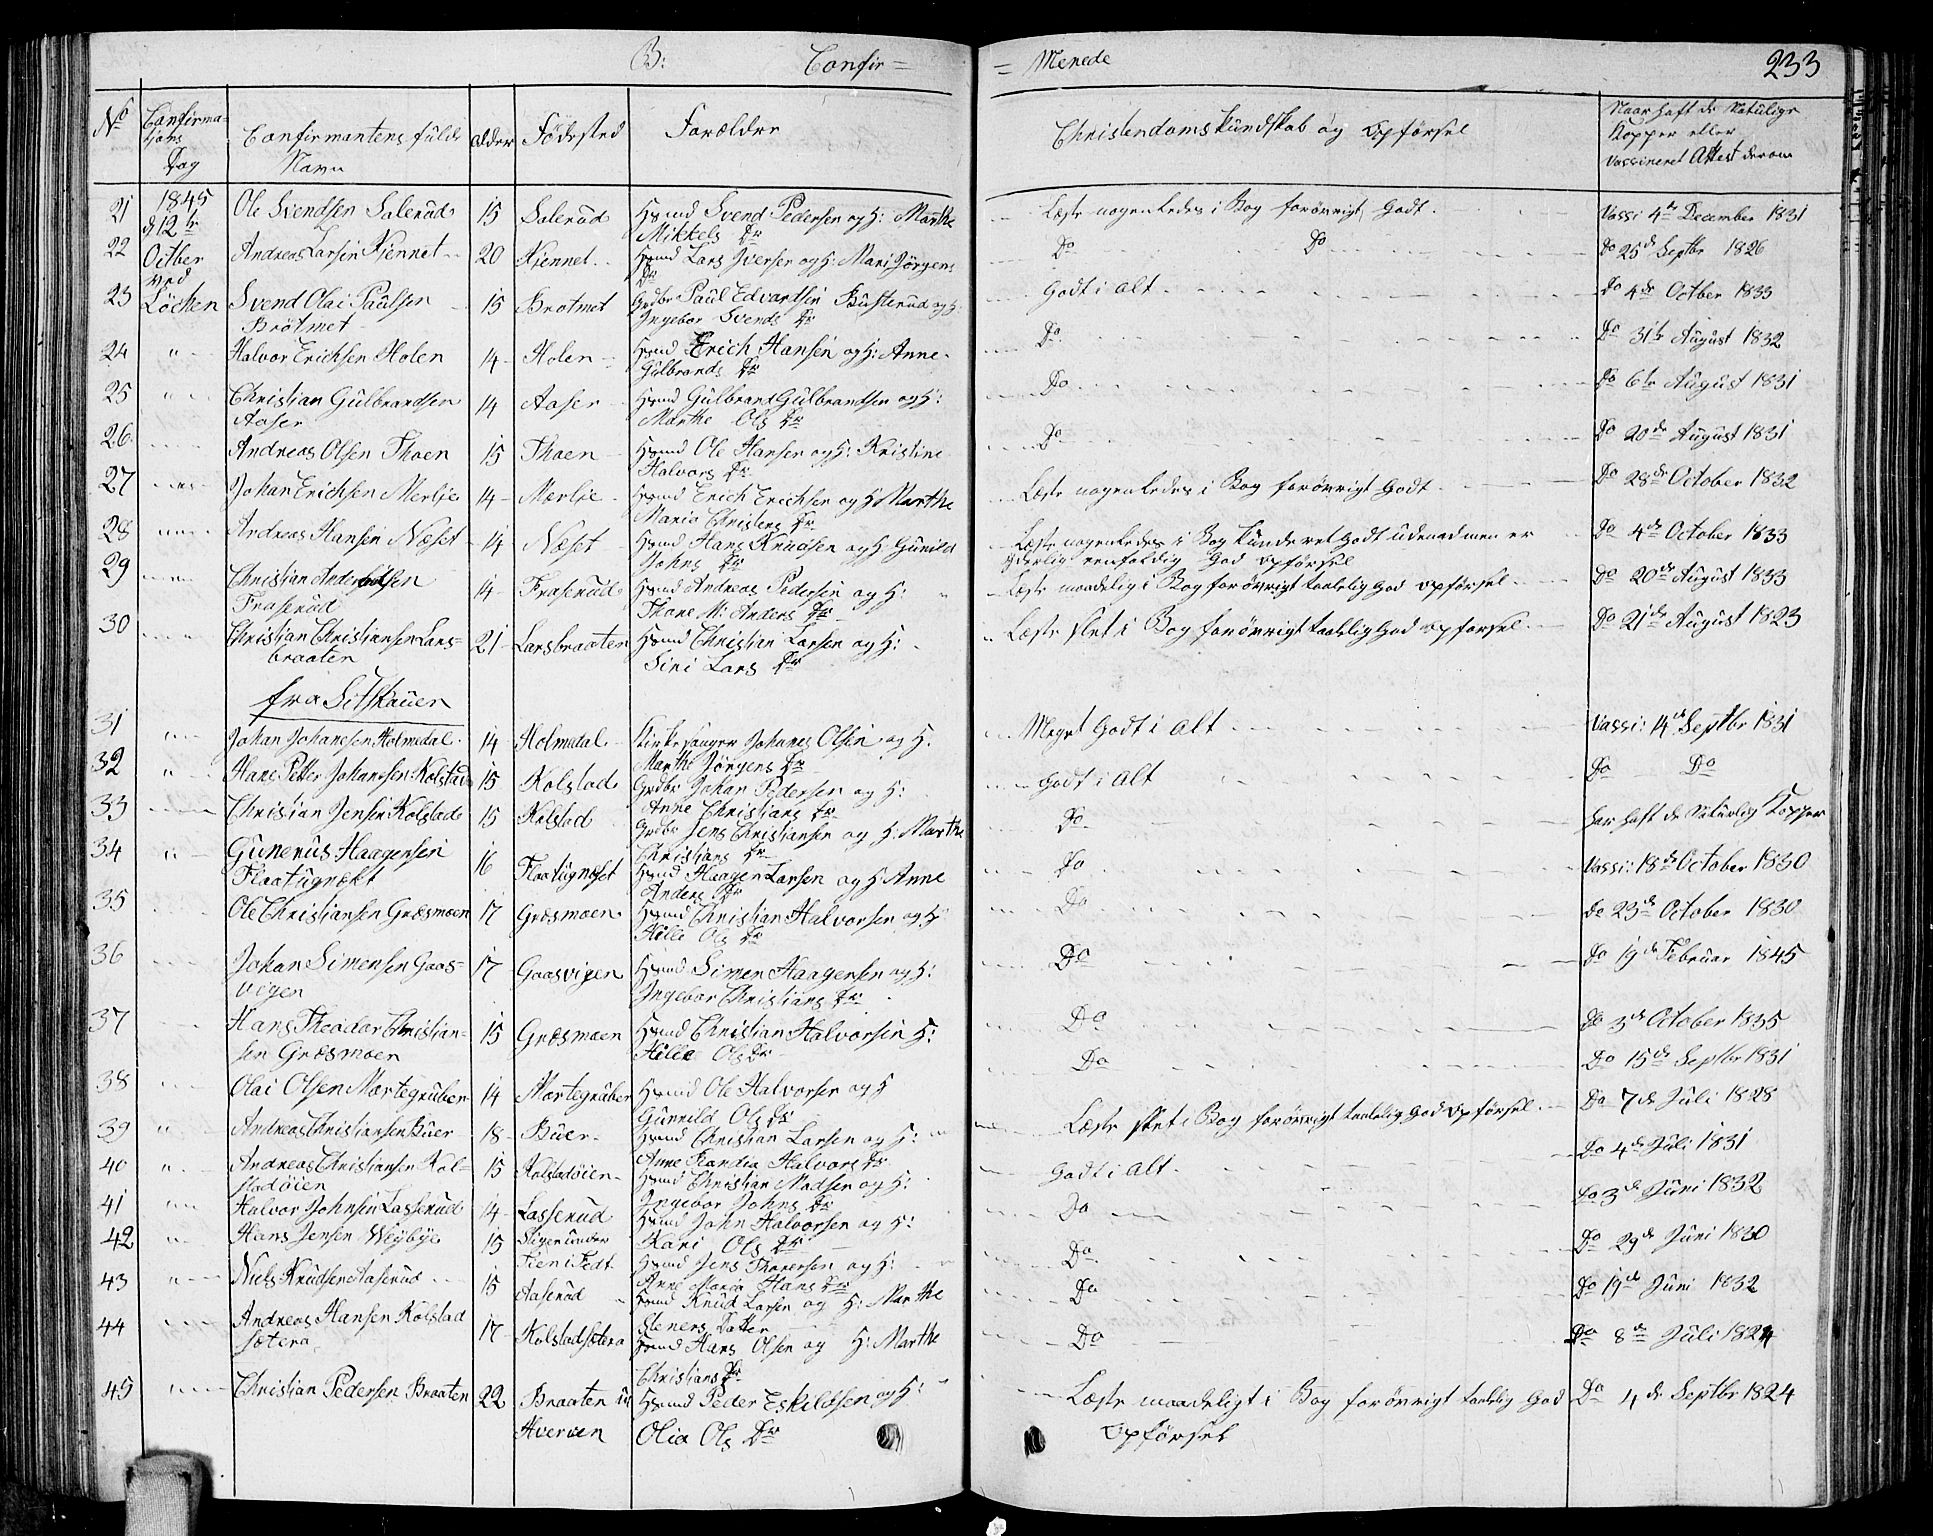 B: Confir = = Merede 233
No Confirma-tions Dag Confirmantens fulde Navn Alder Födested Forældre Christendoms kundskab og Opförsel Naar haft de Natulige Kopper eller Vassineret Attest derom
21 1845 d 12te Ole Svendsen Salerud 15 Salerud Hmd Svend Pedersen og H: Marthe Mikkels Dr Læste nogenledes i Bog forövrigt Godt. Vassi 4de December 1831
22 Octber Andreas Larsen Kiennet 20 Kiennet Hmd Lars Iversen og H: Mari Jörgens Dr Do Do Do 25de Septbr 1826
23 ved Löcken Svend Olai Paulsen Brötmet 15 Brotmet Grdbr Paul Edvartsen Busterud og H: Ingebor Svends Dr Godt i Alt Do 4de Octber 1833
24 Halvor Erichsen Holen 14 Holen Hmd Erich Hansen og H: Anne Gulbrands Dr Do Do 31te August 1832
25 Christian Gulbrandsen Aaser 14 Aaser Hmd Gulbrand Gulbrandsen og H: Marthe Ols Dr Do Do 6te August 1831
26 Andreas Olsen Thoen 15 Thoen Hmd Ole Hansen og H: Kristine Halvors Dr Do Do 20de August 1831
27 Johan Erichsen Merlie 14 Merlie Hmd Erich Erichsen og H: Marthe Maria Christens Dr Læste nogenledes i Bog forövrigt Godt Do 28de October 1832
28 Andreas Hansen Næset 14 Næset Hmd Hans Knudsen og H: Gunild Johns Dr Læste nogenledes i Bog kunde ret Godt udenad men er yderlig eenfoldig God Opförsel Do 4de October 1833
29 Christian Andersen Fraserud 14 Fraserud Hmd Andreas Pedersen og H: Thone M: Anders Dr Læste maadelig i Bog forövrigt taalelig God Opförsel Do 20de August 1833
30 Christian Christiansen Lars-braaten 21 Larsbraaten Hmd Christian Larsen og H: Siri Lars Dr Læste slet i Bog forövrigt taalelig God Opförsel Do 21de August 1823
fra Sitskauen
31 Johan Johanesen Holmedal 14 Holmedal Kirkesanger Johanes Olsen og H. Marthe Jörgens Dr Meget Godt i Alt Vassi: 14de Septbr 1831
32 Hans Petter Johanesen Kolstad 15 Kolstad Grdbr Johan Pedersen og H: Anne Christians Dr Godt i Alt Do Do
33 Christian Jensen Kolstad 15 Kolstad Grdbr Jens Christiansen og H: Marthe Christians Dr Do har haft de Naturlig Kopper
34 Gunerus Haagensen Flaatugnækt 16 Flaatugnæset Hmd Haagen Larsen og H Anne Anders Dr Do Vassi: 18de October 1830
35 Ole Christiansen Græsmoen 17 Græsmoen Hmd Christian Halvorsen og H Hille Ols Dr Do Do 23de October 1830
36 Johan Simensen Gaas-vigen 17 Gaasvigen Hmd Simen Haagensen og H: Ingebor Christians Dr Do Do 19de Februar 1845
37 Hans Theodor Christian-sen Græsmoen 15 Græsmoen Hmd Christian Halvorsen H: Hille Ols Dr Do Do 3de October 1835
38 Olai Olsen Mortegruben 14 Mortegruben Hmd Ole Halvorsen og H Gunnild Ols Dr Do Do 15de Septbr 1831
39 Andreas Christiansen Buer 18 Buer Hmd Christian Larsen og H: Anne Halvors Dr Læste slet i Bog forövrigt taalelig God Opförsel Do 7de Juli 1828
40 Andreas Christiansen Kol-stadöien 15 Kolstadöien Hmd Christian Madsen og H: Ingebor Johns Dr Godt i Alt Do 4de Juli 1831
41 Halvor Johnsen Lasserud 14 Lasserud Hmd John Halvorsen og H: Kari Ols Dr Do Do 3de Juni 1832
42 Hans Jensen Weybye 15 Hmd Jens Thoresen og H: Anne Maria Hans Dr Do Do 29de Juni 1830
43 Niels Knudsen Aaserud 15 Aaserud Hmd Knud Larsen og H: Marthe Steners Datter Do Do 19de Juni 1832
44 Andreas Hansen Kolstad sætera 17 Kolstadsætera Hmd Hans Olsen og H: Marthe Christians Dr Do Do 8de Juli 1824
45 Christian Pedersen Braaten 22 Braaten Hmd Peder Eskildsen og H: Olia Ols Dr Læste maadeligt i Bog forövrigt taalelig God Opförsel Do 4de Septbr 1824